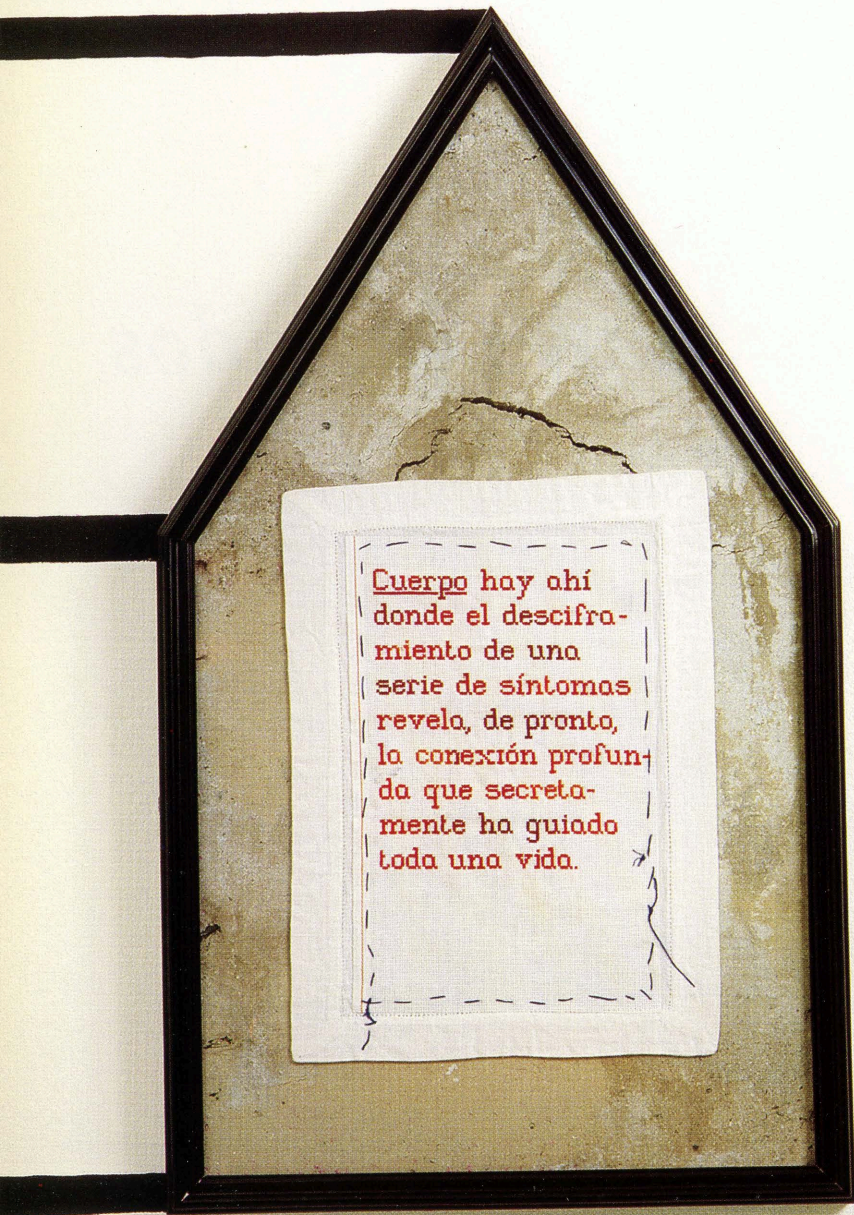 Cuerpo hay ahí
donde el descifra-
miento de una
serie de síntomas
revela, de pronto,
la conexión profun-
da que secreta-
mente ha guiado
toda una vida.